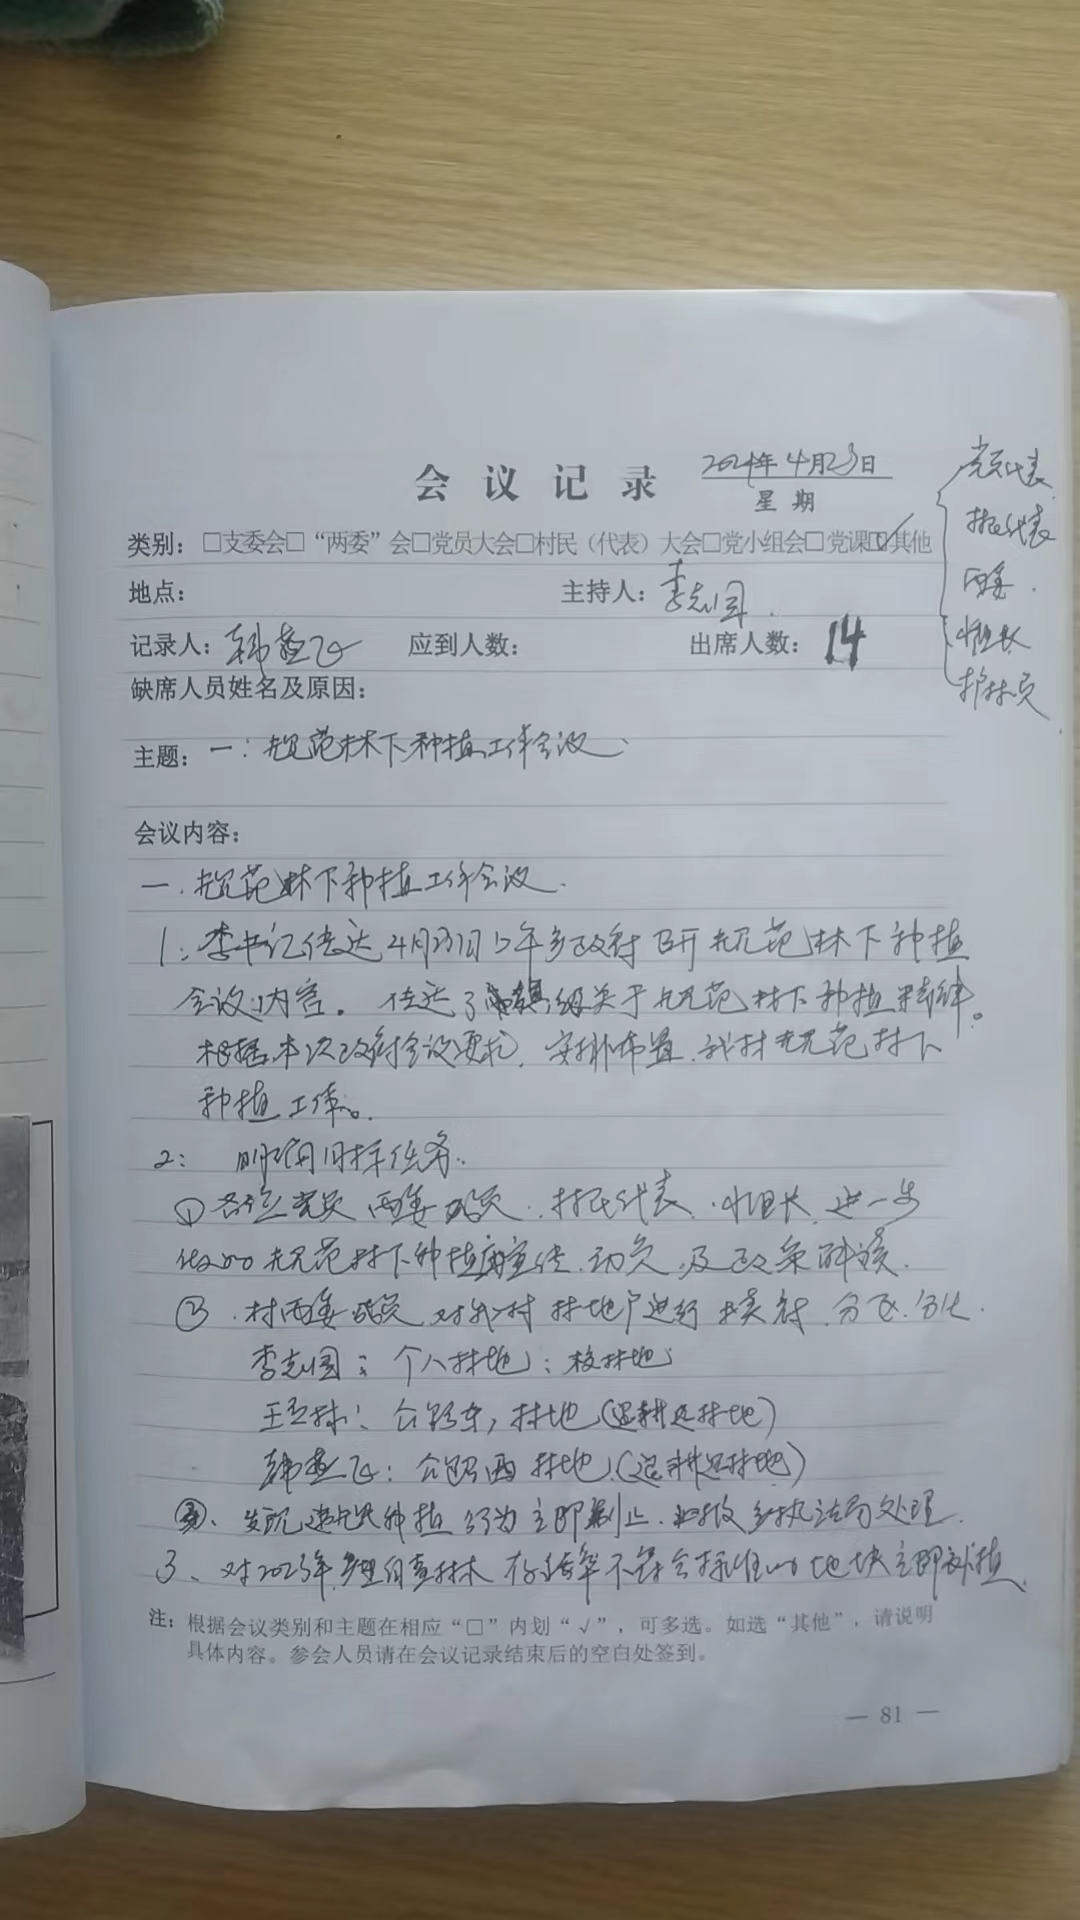 会议记录 2024年4月23日
星期
党员代表
村民代表
两委
小组长
护林员
类别：□支委会□“两委”会□党员大会□村民（代表）大会□党小组会□党课☑其他
地点： 主持人：李志国
记录人：韩 飞 应到人数： 出席人数：14
缺席人员姓名及原因：
主题：一：规范林下种植工作会议
会议内容：
一.规范林下种植工作会议.
1：李书记传达4月23日 午乡政府召开规范林下种植
会议内容。传达了 级关于规范林下种植精神。
根据本次政府会议要求，安排布置，我村规范林下
种植工作。
2： 明确目标任务.
①各位党员 两委成员.村民代表.小组长 进一步
做好规范林下种植 宣传.动员.及政策解读.
② 村两委成员 对我村林地户进行 .分区.分
李志国：个人林地：校林地
王 ：公路东，林地(退耕还林地)
韩 飞：公路西 林地.(退耕还林地)
③、发现违规种植行为立即制止.上报乡执法局处理.
3、对2023年 林木存活率不符合标准的地块立即补植.
注：根据会议类别和主题在相应“□”内划“√”，可多选。如选“其他”，请说明
具体内容。参会人员请在会议记录结束后的空白处签到。
— 81 —